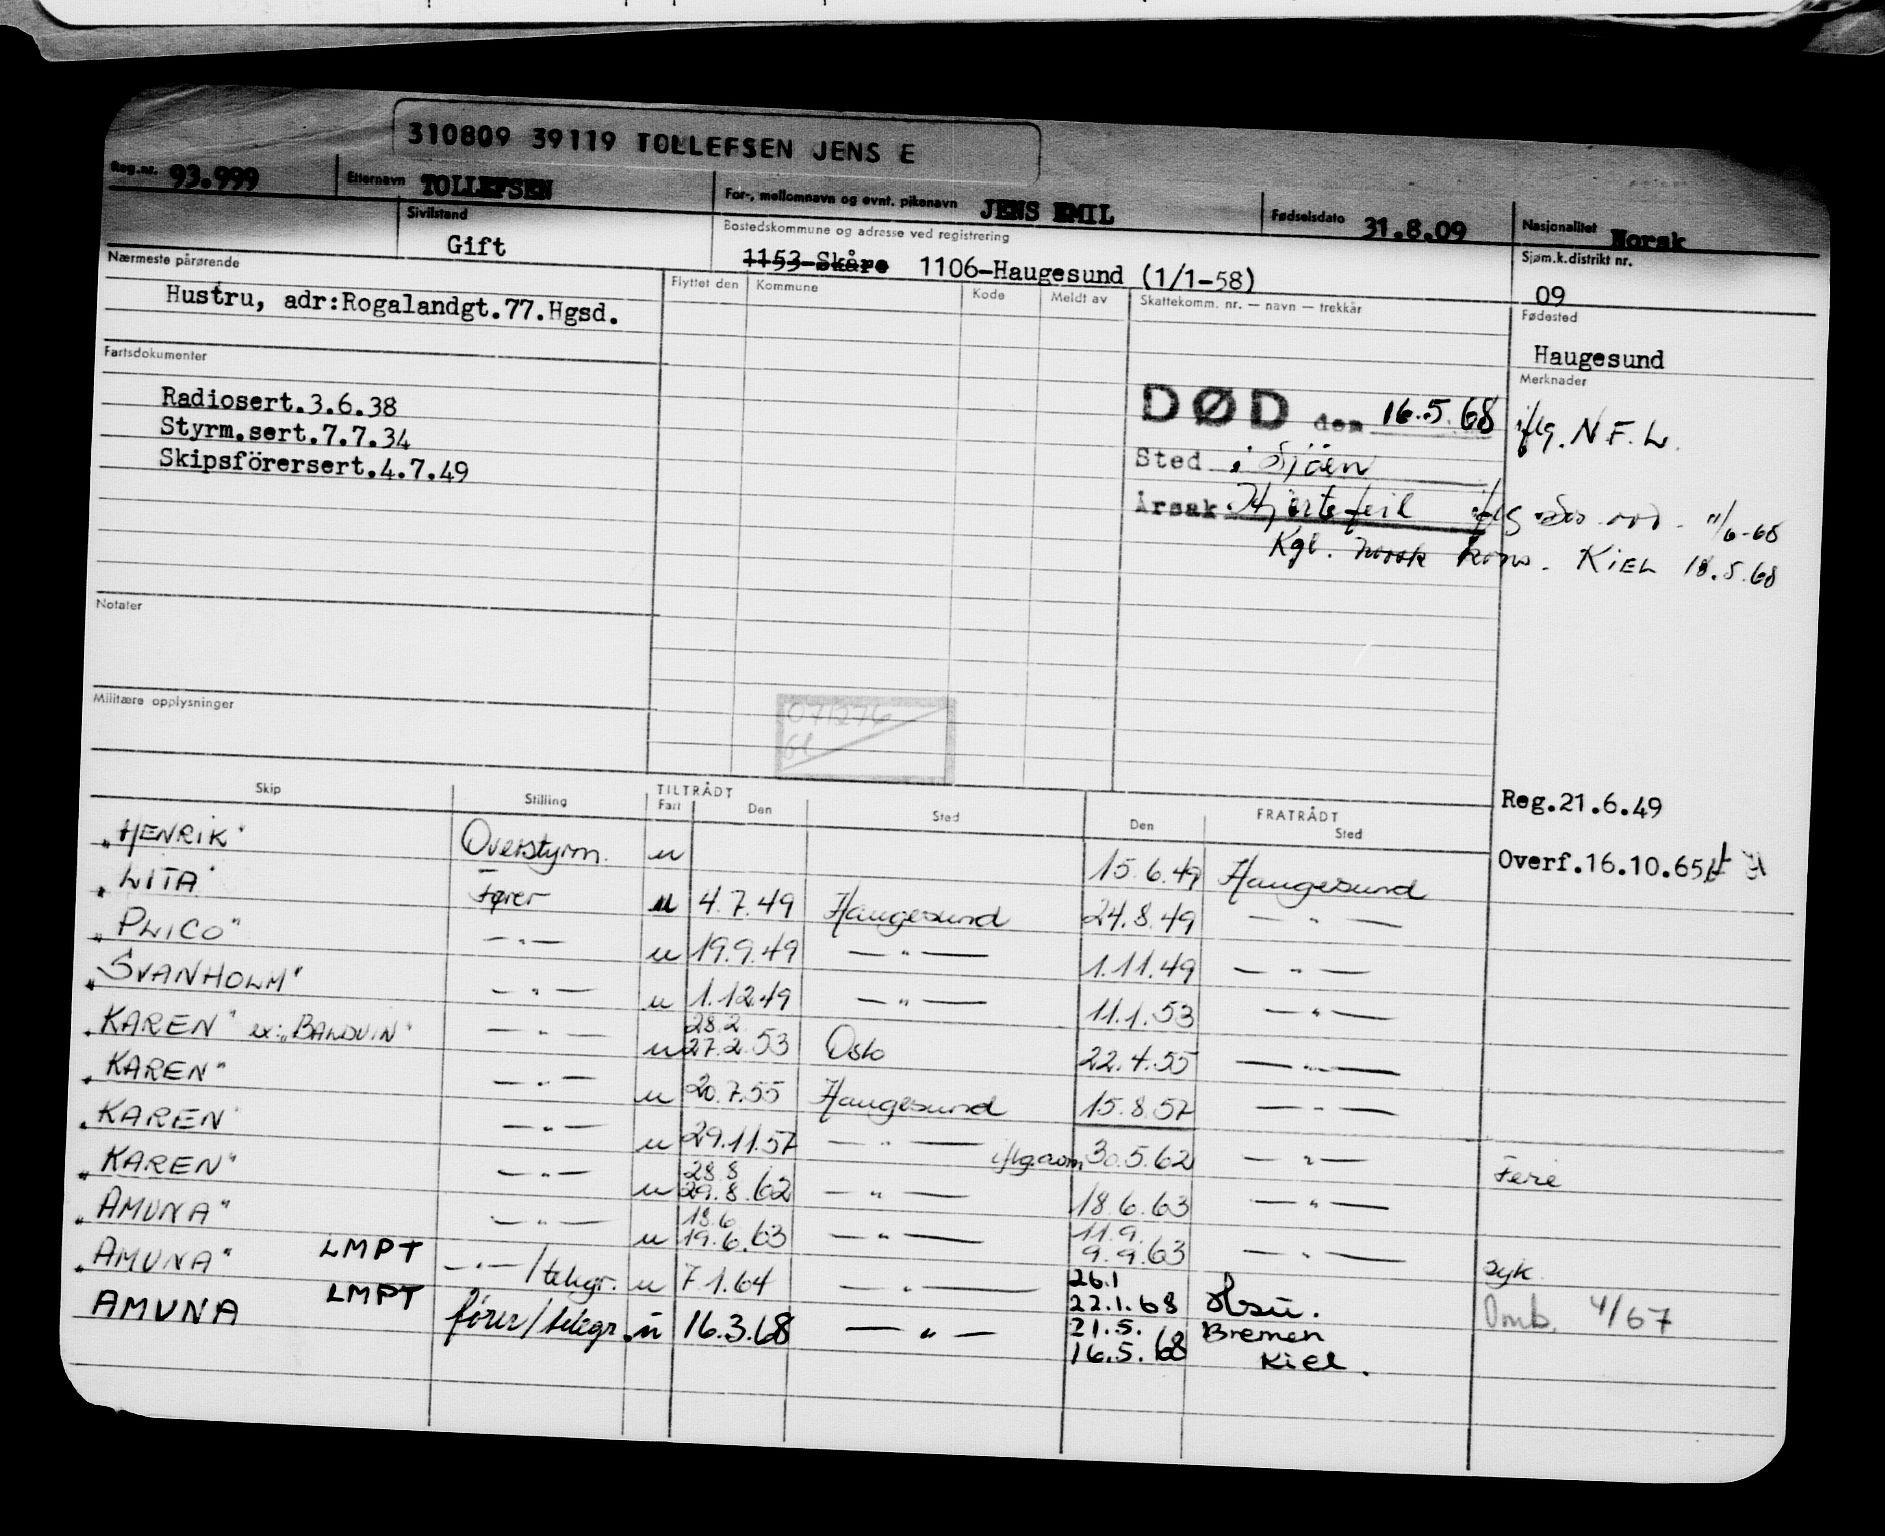 310809 39119 TOLLEFSEN JENS E
Reg.nr. 93.999 Etternavn TOLLEFSEN For-, mellomnavn og evnt. pikenavn JENS EMIL Fødselsdato 31.8.09 Nasjonalitet Norsk
Sivilstand Gift Bostedskommune og adresse ved registrering 1153-Skåre 1106-Haugesund (1/1-58) Sjøm.k.distrikt nr. 09
Nærmeste pårørende Flyttet den Kommune Kode Meldt av Skattekomm. nr. — navn — trekkår Fødested
Hustru, adr:Rogalandgt.77.Hgsd.
Haugesund
Fartsdokumenter Merknader
Radiosert.3.6.38
Styrm.sert.7.7.34
Skipsförersert.4.7.49
DØD den 16.5.68 iflg. N.F.L.
Sted i Sjöen
Årsak Hjertefeil iflg 11/6-68
Kgl. norsk kons. KIEL 18.5.68
Notater
Militære opplysninger
071276
Reg.21.6.49
Overf.16.10.65
Skip Stilling TILTRÅDT Fart Den Sted FRATRÅDT Den Sted
"HENRIK" Overstyrm. u 15.6.49 Haugesund
"LITA" Fører u 4.7.49 Haugesund 24.8.49 — " —
"PLICO" — " — u 19.9.49 — " — 1.11.49 — " —
"SVANHOLM" — " — u 1.12.49 — " — 11.1.53 — " —
"KAREN" ex: "BALDUIN" — " — u 28.2 27.2.53 Oslo 22.4.55 — " —
"KAREN" — " — u 20.7.55 Haugesund 15.8.57 — " —
"KAREN" — " — u 29.11.57 — " — iflg. 30.5.62 — " — Ferie
"KAREN" — " — u 28.8 29.8.62 — " — 18.6.63 — " —
"AMUNA" — " — u 18.6 19.6.63 — " — 11.9. 9.9.63 — " — syk
"AMUNA" LMPT — " — / telegr. u 7.1.64 — " — 26.1 22.1.68 Omb. 4/67
AMUNA LMPT fører/telegr. u 16.3.68 — " — 21.5. 16.5.68 Bremen Kiel.